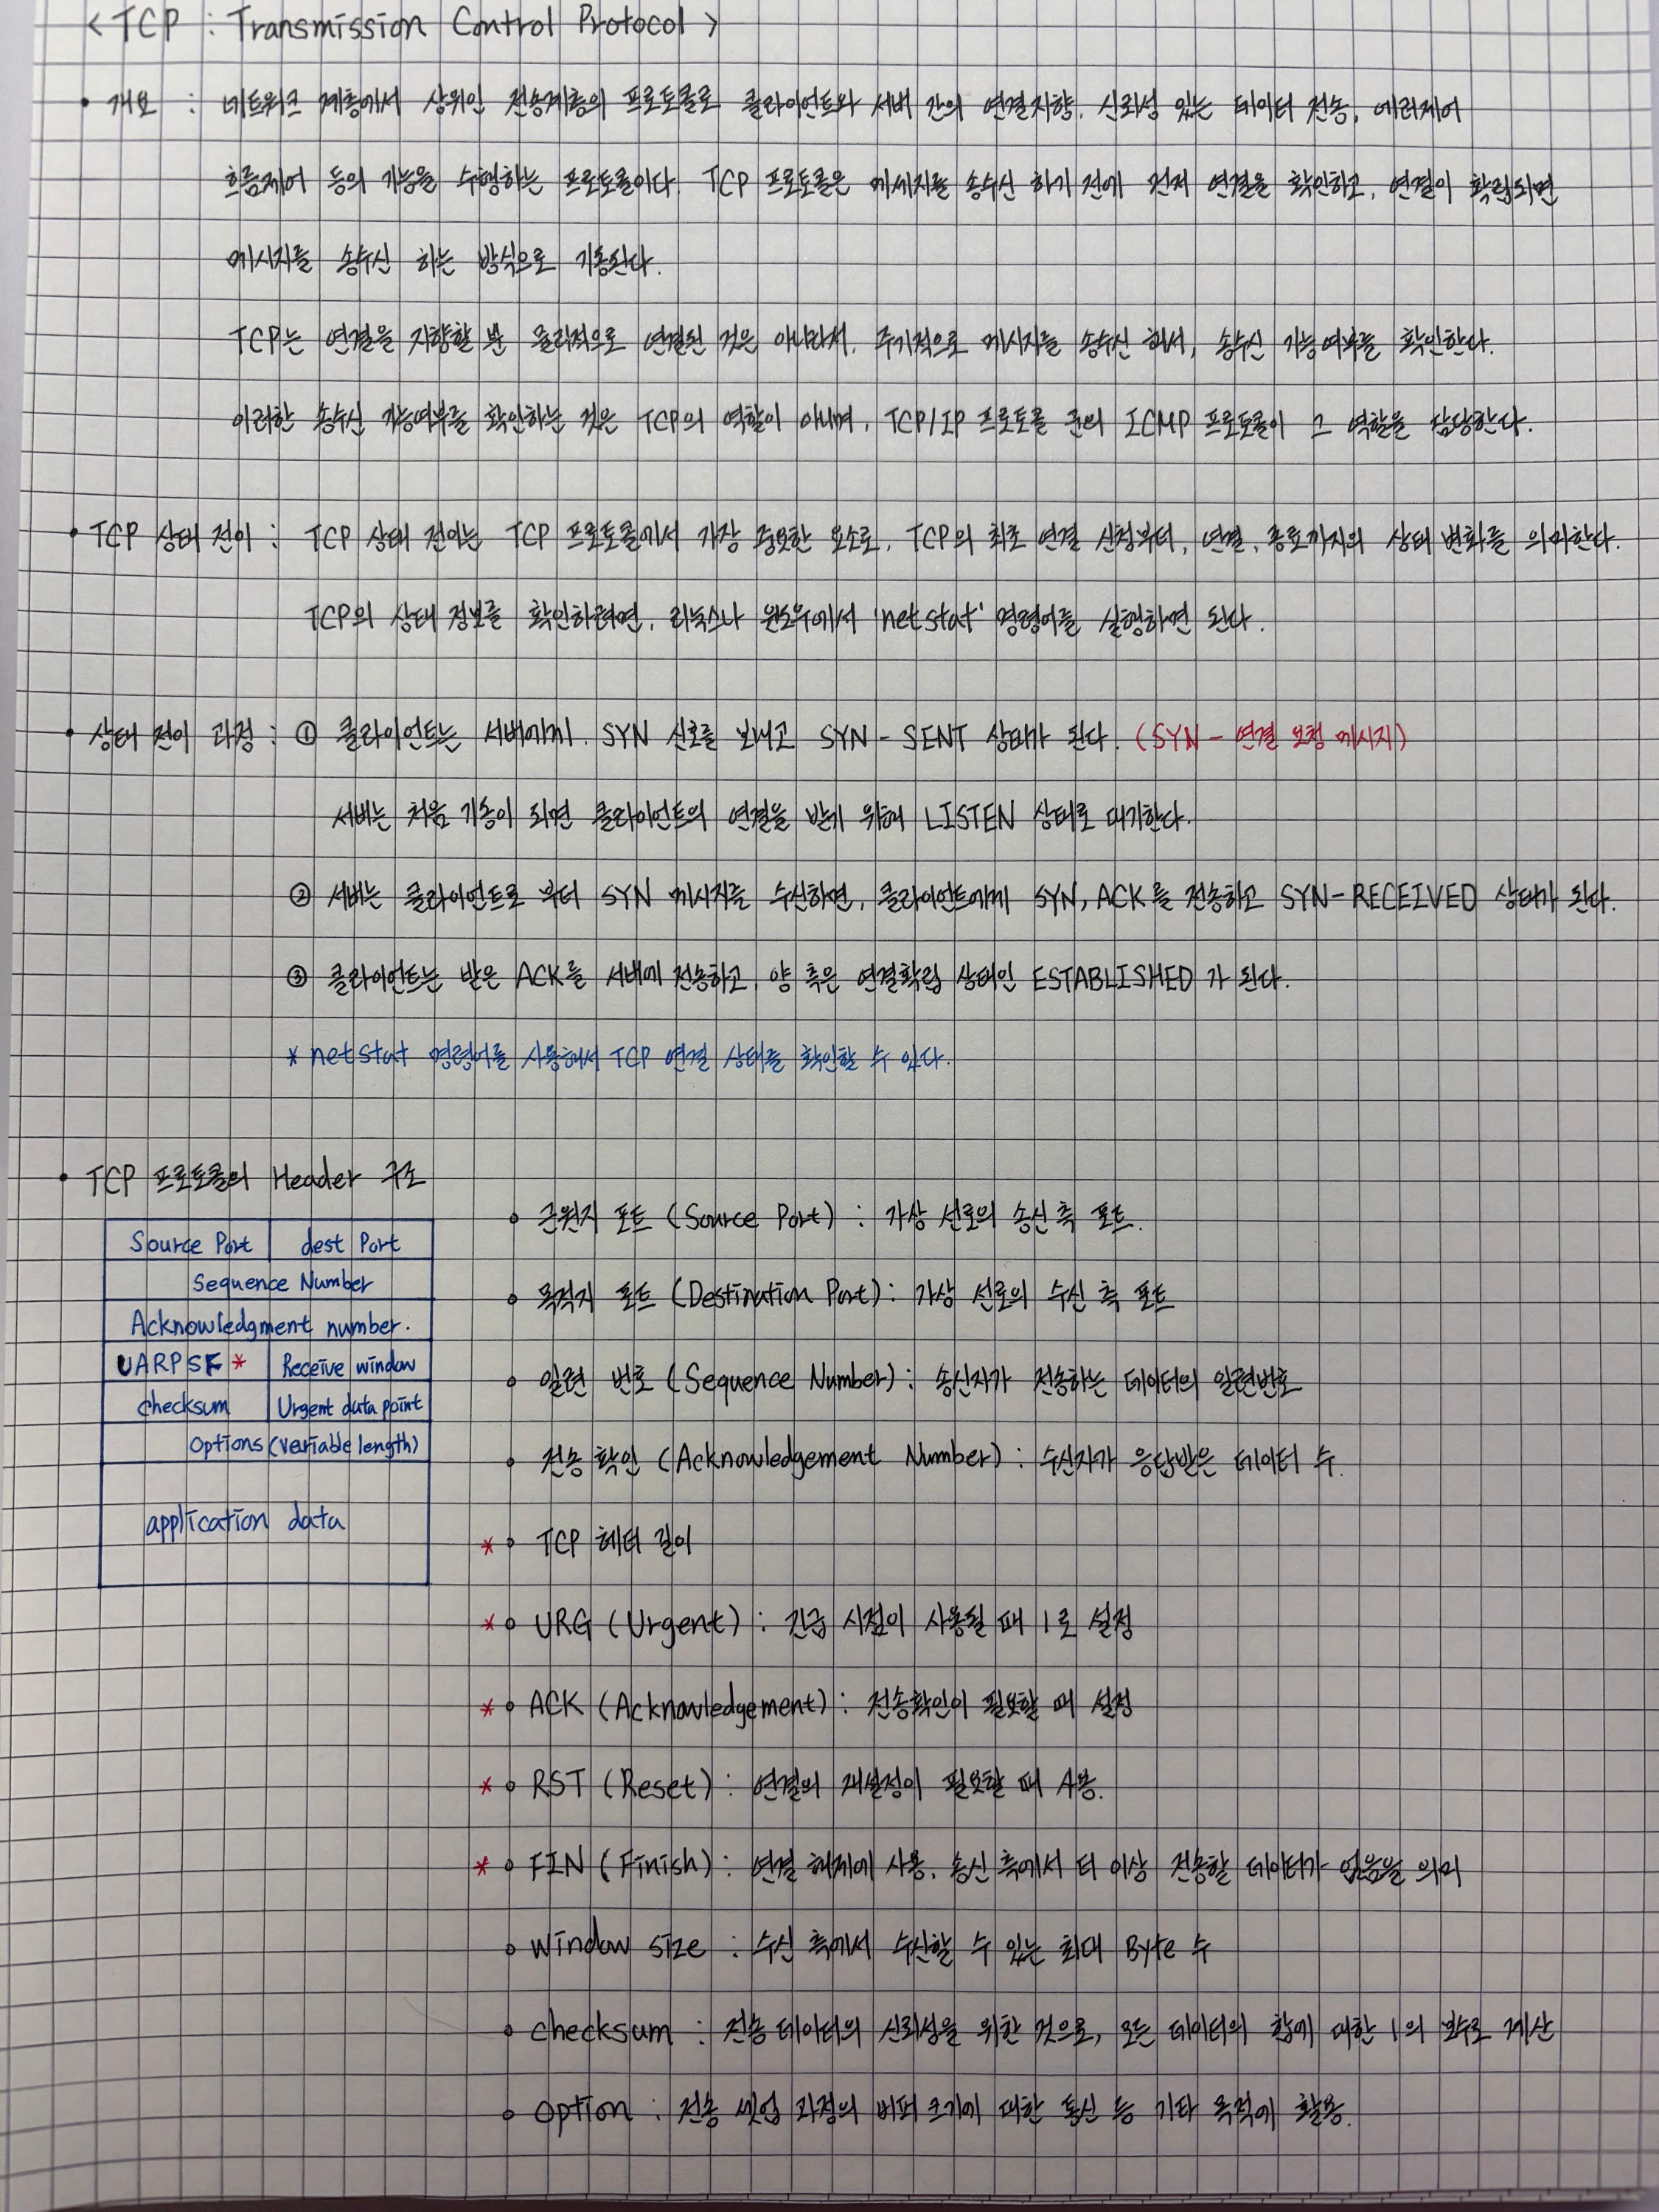 < TCP : Transmission Control Protocol >
• 개요 : 네트워크 계층에서 상위인 전송계층의 프로토콜로 클라이언트와 서버 간의 연결지향, 신뢰성 있는 데이터 전송, 에러제어
흐름제어 등의 기능을 수행하는 프로토콜이다. TCP 프로토콜은 메세지를 송수신 하기 전에 먼저 연결을 확인하고, 연결이 확립되면
메시지를 송수신 하는 방식으로 기동된다.
TCP는 연결을 지향할 뿐 물리적으로 연결된 것은 아니라서, 주기적으로 메시지를 송수신 해서, 송수신 가능여부를 확인한다.
이러한 송수신 가능여부를 확인하는 것은 TCP의 역할이 아니며, TCP/IP 프로토콜 군의 ICMP 프로토콜이 그 역할을 담당한다.
• TCP 상태 전이 : TCP 상태 전이는 TCP 프로토콜에서 가장 중요한 요소로, TCP의 최초 연결 신청부터, 연결, 종료까지의 상태 변화를 의미한다.
TCP의 상태 정보를 확인하려면, 리눅스나 윈도우에서 'netstat' 명령어를 실행하면 된다.
• 상태 전이 과정 : ① 클라이언트는 서버에게 SYN 신호를 보내고 SYN - SENT 상태가 된다. (SYN - 연결 요청 메시지)
서버는 처음 기동이 되면 클라이언트의 연결을 받기 위해 LISTEN 상태로 대기한다.
② 서버는 클라이언트로 부터 SYN 메시지를 수신하면, 클라이언트에게 SYN, ACK를 전송하고 SYN-RECEIVED 상태가 된다.
③ 클라이언트는 받은 ACK를 서버에 전송하고, 양 측은 연결확립 상태인 ESTABLISHED 가 된다.
* netstat 명령어를 사용해서 TCP 연결 상태를 확인할 수 있다.
• TCP 프로토콜의 Header 구조
Source Port dest Port
Sequence Number
Acknowledgment number.
UARPSF * Receive window
checksum Urgent data point
options (variable length)
application data
∘ 근원지 포트 (Source Port) : 가상 선로의 송신 측 포트.
∘ 목적지 포트 (Destination Port) : 가상 선로의 수신 측 포트
∘ 일련 번호 (Sequence Number) : 송신자가 전송하는 데이터의 일련번호
∘ 전송 확인 (Acknowledgement Number) : 수신자가 응답받은 데이터 수.
* ∘ TCP 헤더 길이
* ∘ URG (Urgent) : 긴급 시점이 사용될 때 1로 설정
* ∘ ACK (Acknowledgement) : 전송확인이 필요할 때 설정
* ∘ RST (Reset) : 연결의 재설정이 필요할 때 사용.
* ∘ FIN (Finish) : 연결 해제에 사용, 송신 측에서 더 이상 전송할 데이터가 없음을 의미
∘ window size : 수신 측에서 수신할 수 있는 최대 Byte 수
∘ checksum : 전송 데이터의 신뢰성을 위한 것으로, 모든 데이터의 합에 대한 1의 보수로 계산
∘ option : 전송 셋업 과정의 버퍼 크기에 대한 통신 등 기타 목적에 활용.